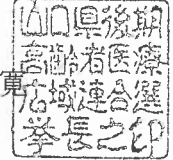 山口県後期
高齢者医療
広域連合選
挙長之印